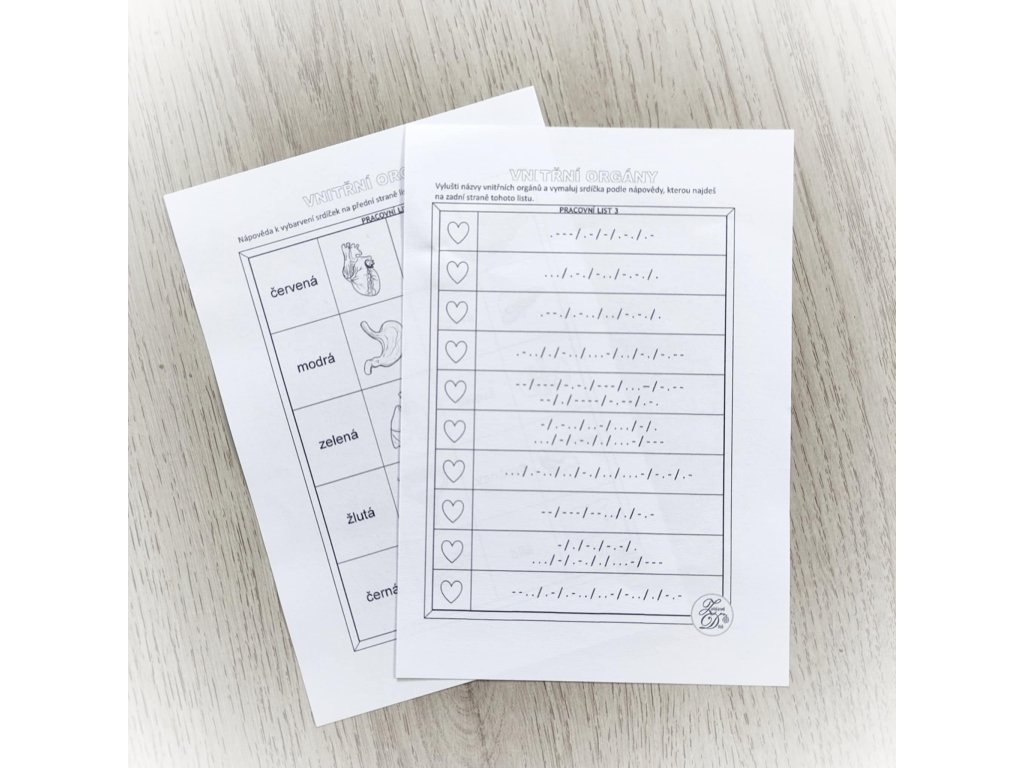 VNITŘNÍ ORG
Nápověda k vybarvení srdíček na přední straně
PRACOVNÍ
červená
modrá
zelená
žlutá
černá
VNITŘNÍ ORGÁNY
Vylušti názvy vnitřních orgánů a vymaluj srdíčka podle nápovědy, kterou najdeš
na zadní straně tohoto listu.
PRACOVNÍ LIST 3
.---/.-/-/.-./.-
.../.-./-../-.-./.
.--./.-../../-.-./.
.-.././-../...-/../-./-.--
--/---/-.-./---/...-/-.--
--/./----/-.--/.-.
-/.-../..-/.../-/.
.../-/.-././...-/---
.../.-../../-./../...-/-.-/.-
--/---/--.././-.-
-/./-./-.-/.
.../-/.-././...-/---
--../.-/.-../..-/-.././-.-